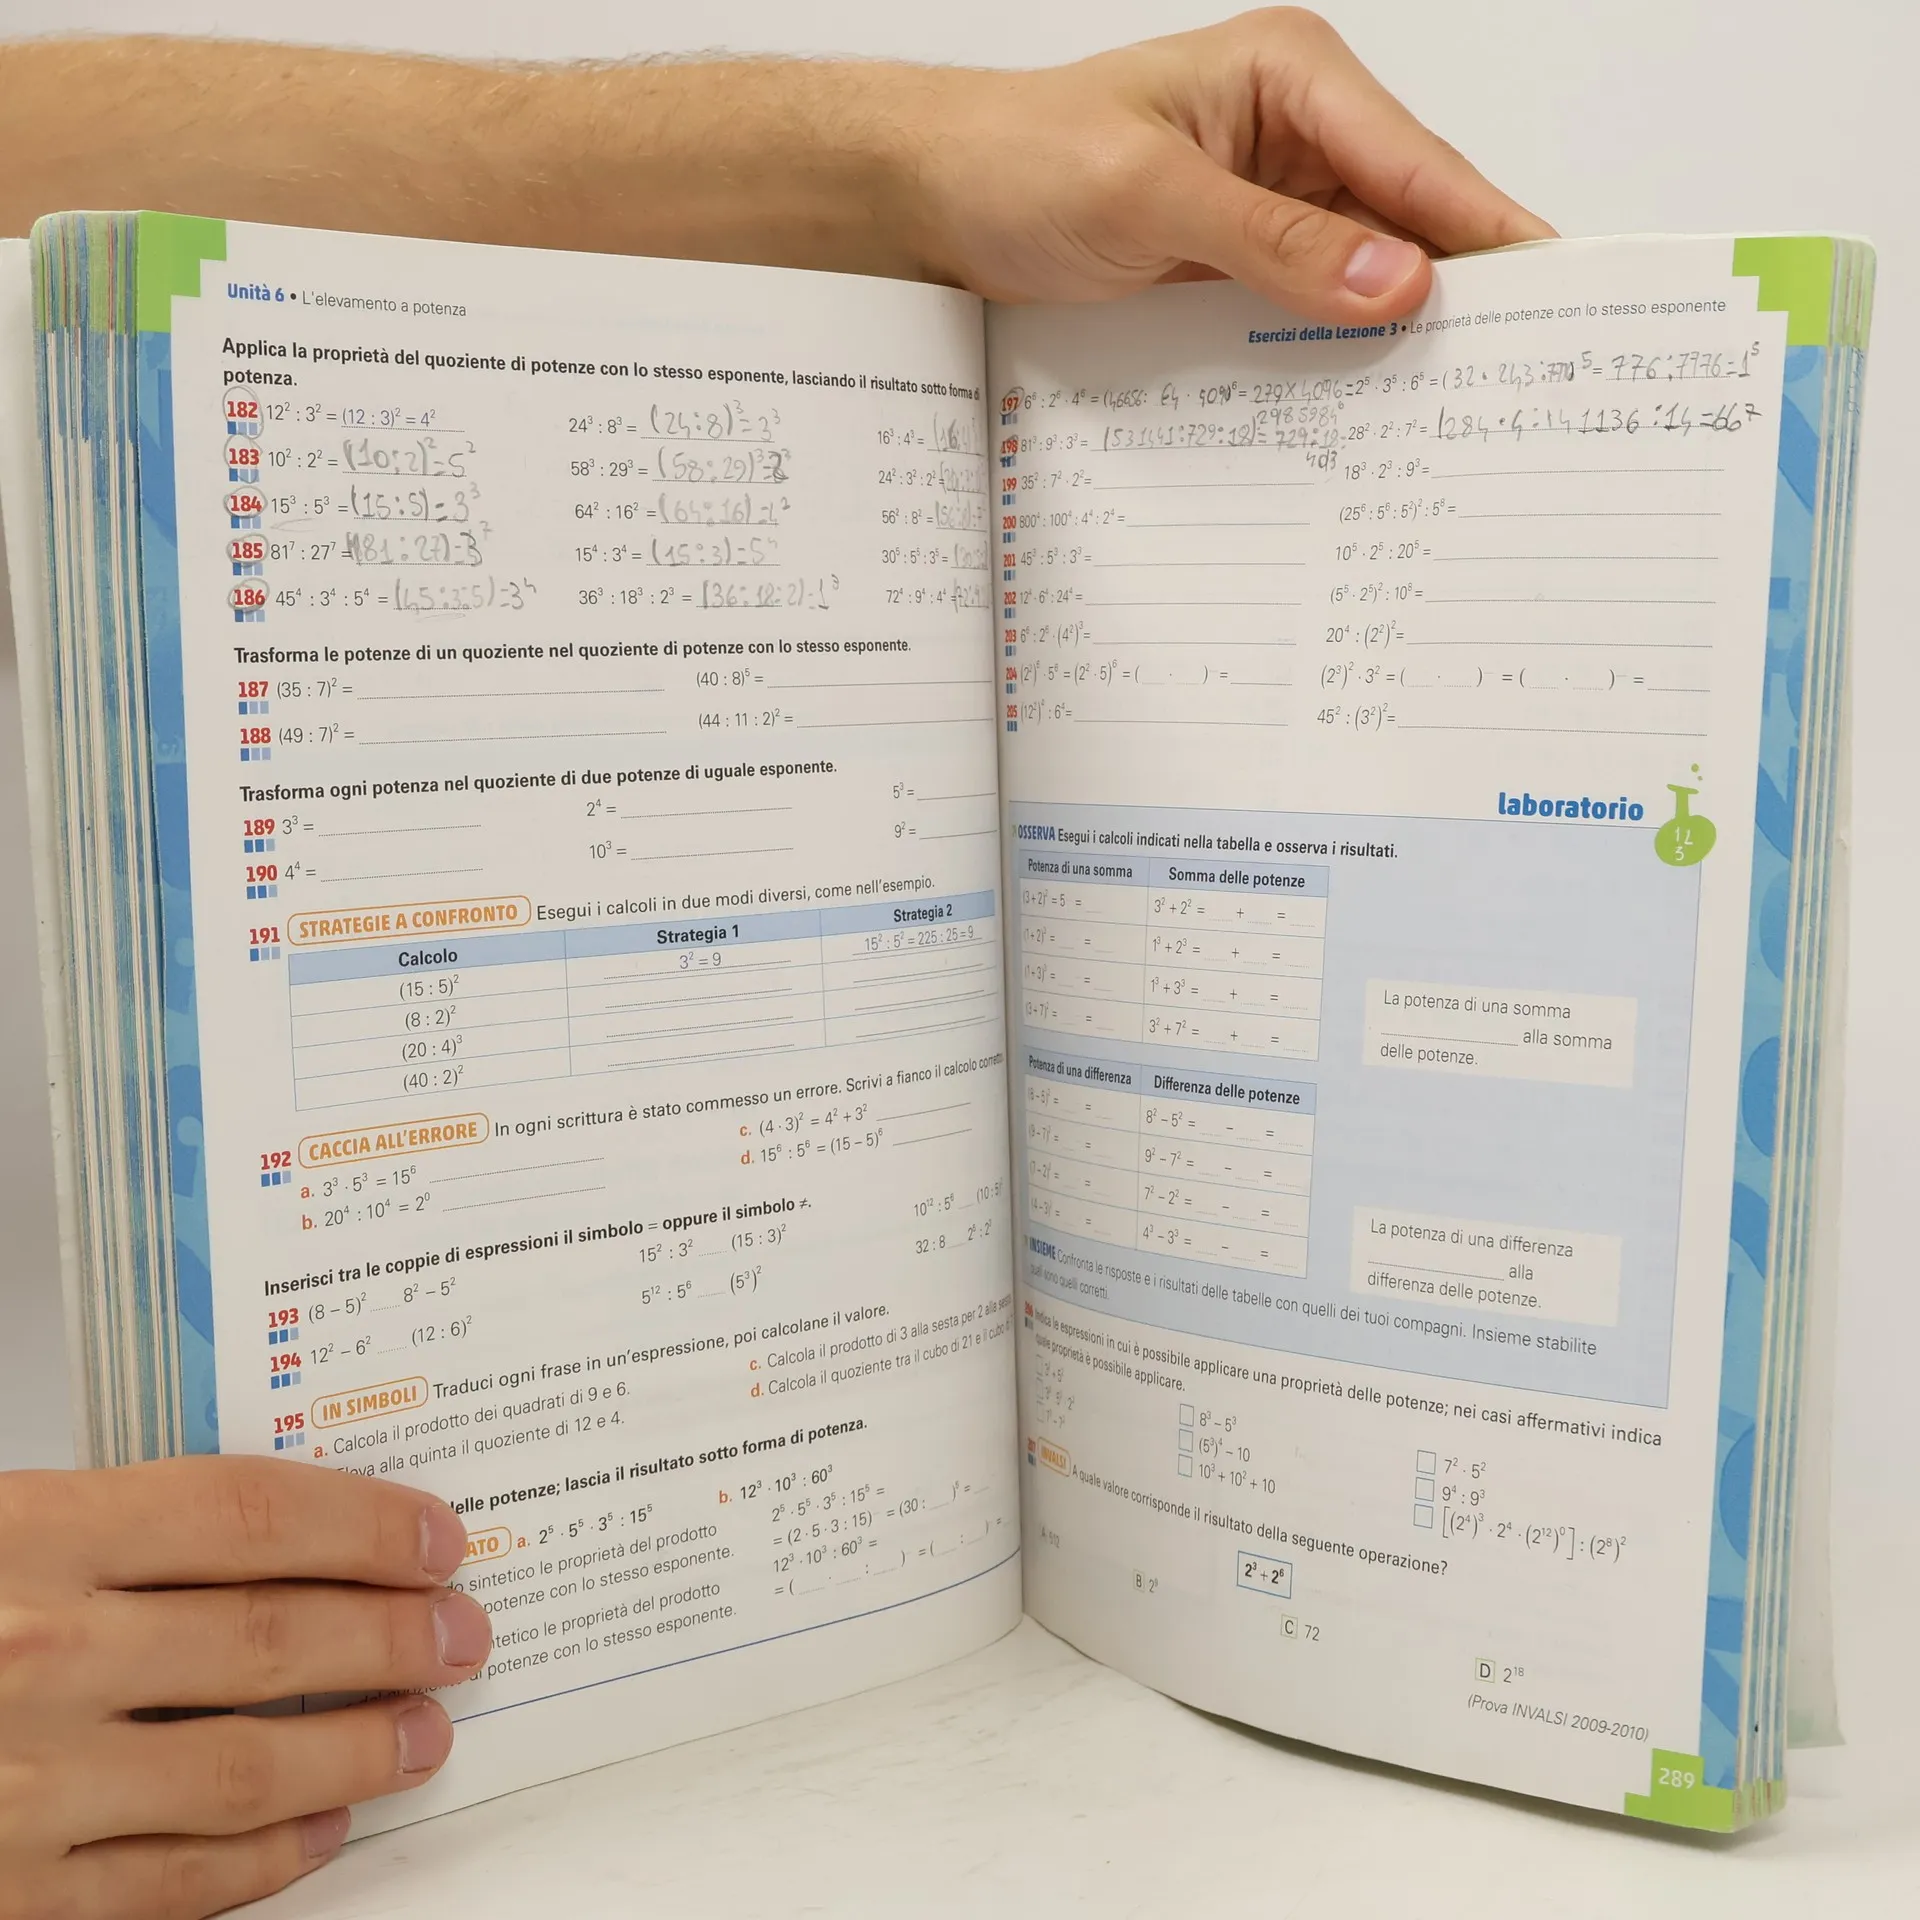 Unità 6 • L'elevamento a potenza
Applica la proprietà del quoziente di potenze con lo stesso esponente, lasciando il risultato sotto forma di
potenza.
182 12² : 3² = (12 : 3)² = 4² 24³ : 8³ = (24:8)³=3³ 16³ : 4³ =
183 10² : 2² = (10:2)²=5² 58³ : 29³ = (58:29)³=2³ 24² : 3² : 2² =
184 15³ : 5³ = (15:5)=3³ 64² : 16² = (64:16)=4² 56² : 8² =
185 81⁷ : 27⁷ = (81:27)=3⁷ 15⁴ : 3⁴ = (15:3)=5⁴ 30⁵ : 5⁵ : 3⁵ =
186 45⁴ : 3⁴ : 5⁴ = (45:3:5)=3⁴ 36³ : 18³ : 2³ = (36:18:2)=1³ 72⁴ : 9⁴ : 4⁴ =
Trasforma le potenze di un quoziente nel quoziente di potenze con lo stesso esponente.
187 (35 : 7)² = (40 : 8)⁵ =
188 (49 : 7)² = (44 : 11 : 2)² =
Trasforma ogni potenza nel quoziente di due potenze di uguale esponente.
189 3³ = 2⁴ = 5³ =
190 4⁴ = 10³ = 9² =
191 STRATEGIE A CONFRONTO Esegui i calcoli in due modi diversi, come nell'esempio.
Calcolo Strategia 1 Strategia 2
(15 : 5)² 3² = 9 15² : 5² = 225 : 25 = 9
(8 : 2)²
(20 : 4)³
(40 : 2)²
192 CACCIA ALL'ERRORE In ogni scrittura è stato commesso un errore. Scrivi a fianco il calcolo corretto.
a. 3³ · 5³ = 15⁶ c. (4 · 3)² = 4² + 3²
b. 20⁴ : 10⁴ = 2⁰ d. 15⁶ : 5⁶ = (15 – 5)⁶
Inserisci tra le coppie di espressioni il simbolo = oppure il simbolo ≠.
193 (8 – 5)² 8² – 5² 15² : 3² (15 : 3)² 10¹² : 5⁶
194 12² – 6² (12 : 6)² 5¹² : 5⁶ (5³)² 32 : 8
195 IN SIMBOLI Traduci ogni frase in un'espressione, poi calcolane il valore.
a. Calcola il prodotto dei quadrati di 9 e 6. c. Calcola il prodotto di 3 alla sesta per 2 alla sesta
alla quinta il quoziente di 12 e 4. d. Calcola il quoziente tra il cubo di 21 e il cubo
delle potenze; lascia il risultato sotto forma di potenza.
a. 2⁵ · 5⁵ · 3⁵ : 15⁵ b. 12³ · 10³ : 60³
sintetico le proprietà del prodotto 2⁵ · 5⁵ · 3⁵ : 15⁵ =
potenze con lo stesso esponente. = (2 · 5 · 3 : 15) = (30 : )⁵ =
le proprietà del prodotto 12³ · 10³ : 60³ =
di potenze con lo stesso esponente. = ( · : ) = ( : ) =
Esercizi della Lezione 3 • Le proprietà delle potenze con lo stesso esponente
197 6⁶ : 2⁶ · 4⁶ = 2⁵ · 3⁵ : 6⁵ =
198 81³ : 9³ : 3³ = 28² · 2² : 7² =
199 35² : 7² · 2² = 18³ · 2³ : 9³ =
200 800⁴ : 100⁴ : 4⁴ : 2⁴ = (25⁶ : 5⁶ : 5²)² : 5⁸ =
201 45³ : 5³ : 3³ = 10⁵ · 2⁵ : 20⁵ =
202 12⁴ · 6⁴ : 24⁴ = (5⁵ · 2⁵)² : 10⁸ =
203 6⁶ : 2⁶ · (4²)³ = 20⁴ : (2²)² =
204 (2²)⁶ · 5⁶ = (2² · 5)⁶ = ( · ) = (2³)² · 3² = ( · ) = ( · ) =
205 (12²)² : 6⁴ = 45² : (3²)² =
laboratorio
OSSERVA Esegui i calcoli indicati nella tabella e osserva i risultati.
Potenza di una somma Somma delle potenze
(3+2)² = 5 = 3² + 2² = + =
(1+2)³ = = 1³ + 2³ = + =
(1+3)³ = = 1³ + 3³ = + =
(3+7)² = = 3² + 7² = + =
La potenza di una somma
alla somma
delle potenze.
Potenza di una differenza Differenza delle potenze
(8–5)² = = 8² – 5² = – =
(9–7)² = = 9² – 7² = – =
(7–2)² = = 7² – 2² = – =
(4–3)³ = = 4³ – 3³ = – =
La potenza di una differenza
alla
differenza delle potenze.
INSIEME Confronta le risposte e i risultati delle tabelle con quelli dei tuoi compagni. Insieme stabilite
quali sono quelli corretti.
206 Indica le espressioni in cui è possibile applicare una proprietà delle potenze; nei casi affermativi indica
quale proprietà è possibile applicare.
8³ – 5³ 7² · 5²
(5³)⁴ – 10 9⁴ : 9³
10³ + 10² + 10 [(2⁴)³ · 2⁴ · (2¹²)⁰] : (2⁸)²
207 INVALSI A quale valore corrisponde il risultato della seguente operazione?
2³ + 2⁶
A 512
B 2⁹
C 72
D 2¹⁸
(Prova INVALSI 2009-2010)
289